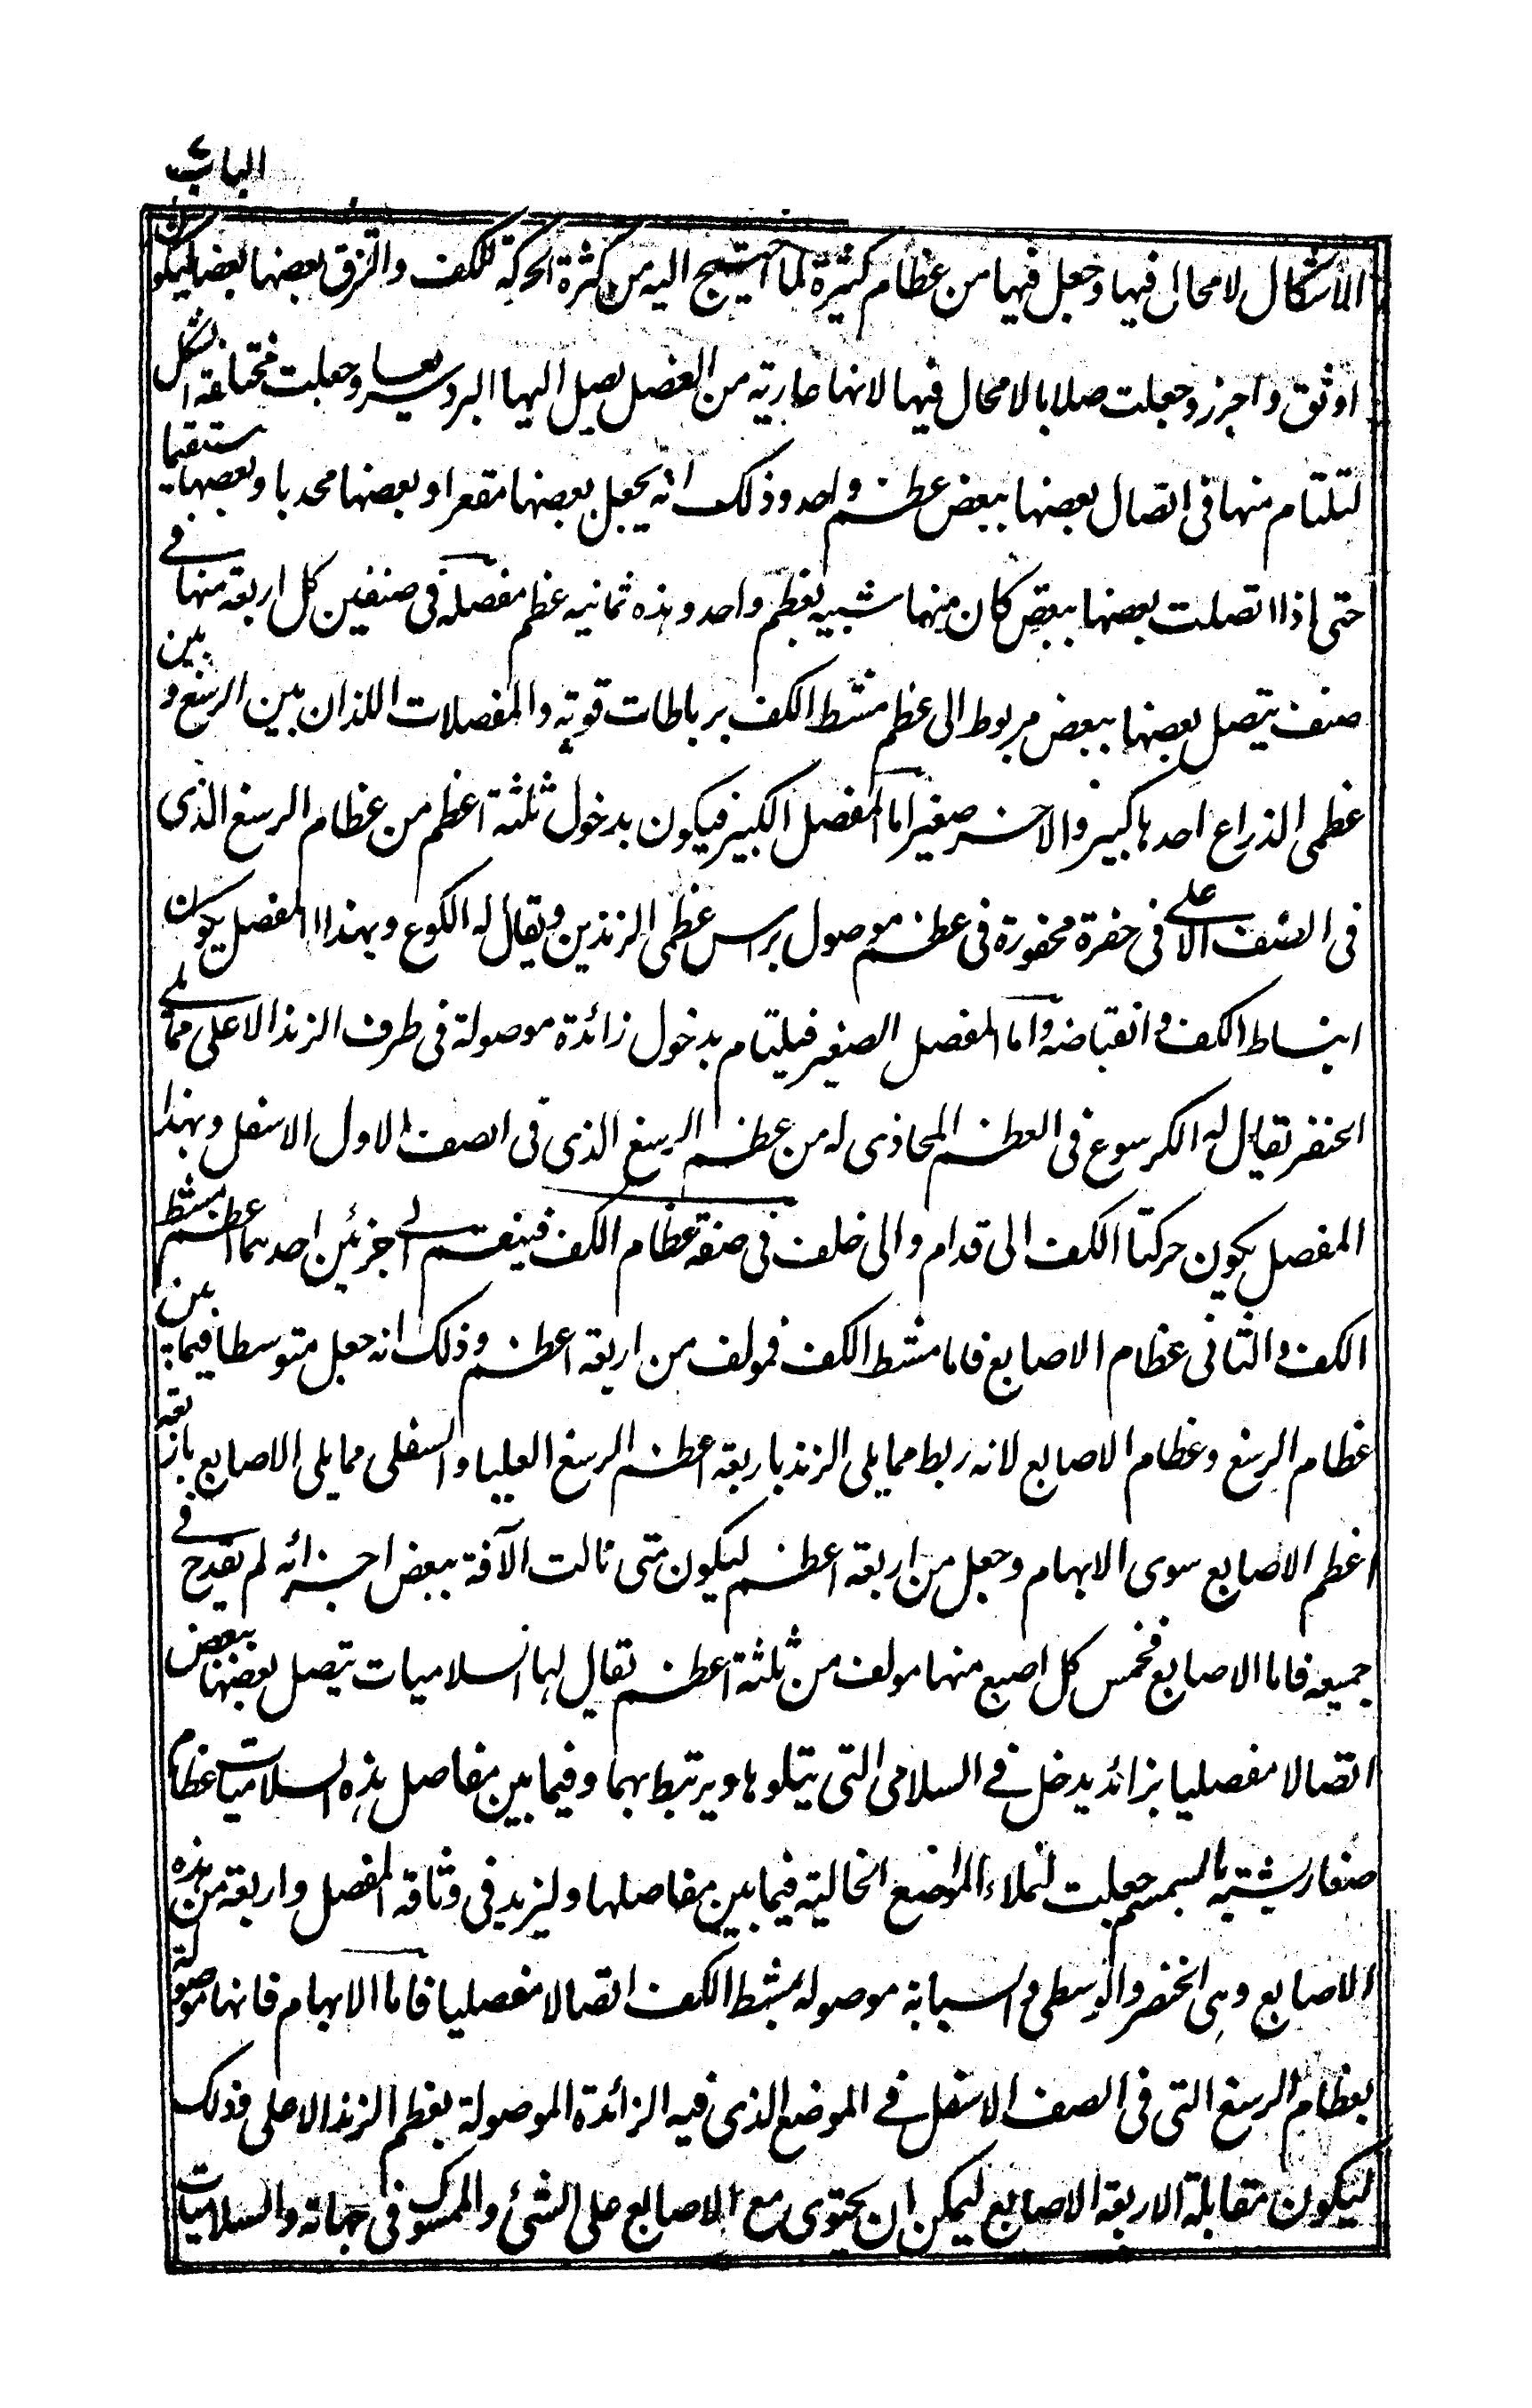 الباب
الاشكال لا محال فيها وجعل فيها من عظام كثيرة لما احتيج اليه من كثرة الحركة للكف والتزق بعضها بعضا ليكون
اوثق واحرز وجعلت صلابا لا محال فيها لانها عارية من العضل يصل اليها البرد سريعا وجعلت مختلفة الشكل
لتلتام منها فى اتصال بعضها ببعض عظم واحد وذلك انه يجعل بعضها مقعرا وبعضها محدبا وبعضها مستقيما
حتى اذا اتصلت بعضها ببعض كان منها شبيه بعظم واحد وهذه ثمانيه عظم مفصله فى صنفين كل اربعة منها فى
صنف يتصل بعضها ببعض مربوط الى عظم مشط الكف برباطات قوية والمفصلات اللذان بين الرسغ وبين
عظمى الذراع احدها كبير والاخر صغير اما المفصل الكبير فيكون بدخول ثلثة اعظم من عظام الرسغ الذى
فى الصف الاعلى فى حفرة محفورة فى عظم موصول براس عظمى الزندين ويقال له الكوع وبهذا المفصل يكون
انبساط الكف وانقباضه واما المفصل الصغير فيلتام بدخول زائدة موصولة فى طرف الزند الاعلى مما يلى
الخنضر يقال له الكرسوع فى العظم المحاذى له من عظم الرسغ الذى فى الصف الاول الاسفل وبهذا
المفصل يكون حركتا الكف الى قدام والى خلف فى صفة عظام الكف فينقسم الى جزئين احدهما عظم مشط
الكف والثانى عظام الاصابع فاما مشط الكف فمولف من اربعة اعظم وذلك انه جعل متوسطا فيما بين
عظام الرسغ وعظام الاصابع لانه ربط مما يلى الزند باربعة اعظم الرسغ العليا والسفلى مما يلى الاصابع باربعة
اعظم الاصابع سوى الابهام وجعل من اربعة اعظم ليكون متى نالت الآفة ببعض اجزائه لم تقدح فى
جميعه فاما الاصابع فخمس كل اصبع منها مولف من ثلثة اعظم يقال لها السلاميات يتصل بعضها ببعض
اتصالا مفصليا بزائد يدخل فى السلامى التى يتلوها ويرتبط بهما وفيما بين مفاصل هذه السلاميات عظام
صغار يشبه بالسمسم جعلت لتملاء المواضع الخالية فيما بين مفاصلها وليزيد فى وثاقة المفصل واربعة من هذه
الاصابع وهى الخنصر والوسطى والسبابة موصولة بمشط الكف اتصالا مفصليا فاما الابهام فانها موصولة
بعظام الرسغ التى فى الصف الاسفل فى الموضع الذى فيه الزائدة الموصولة بعظم الزند الاعلى فذلك
ليكون مقابلة الاربعة الاصابع ليمكن ان يحتوى مع الاصابع على الشئ والممسوك فى جهاته والسلاميات